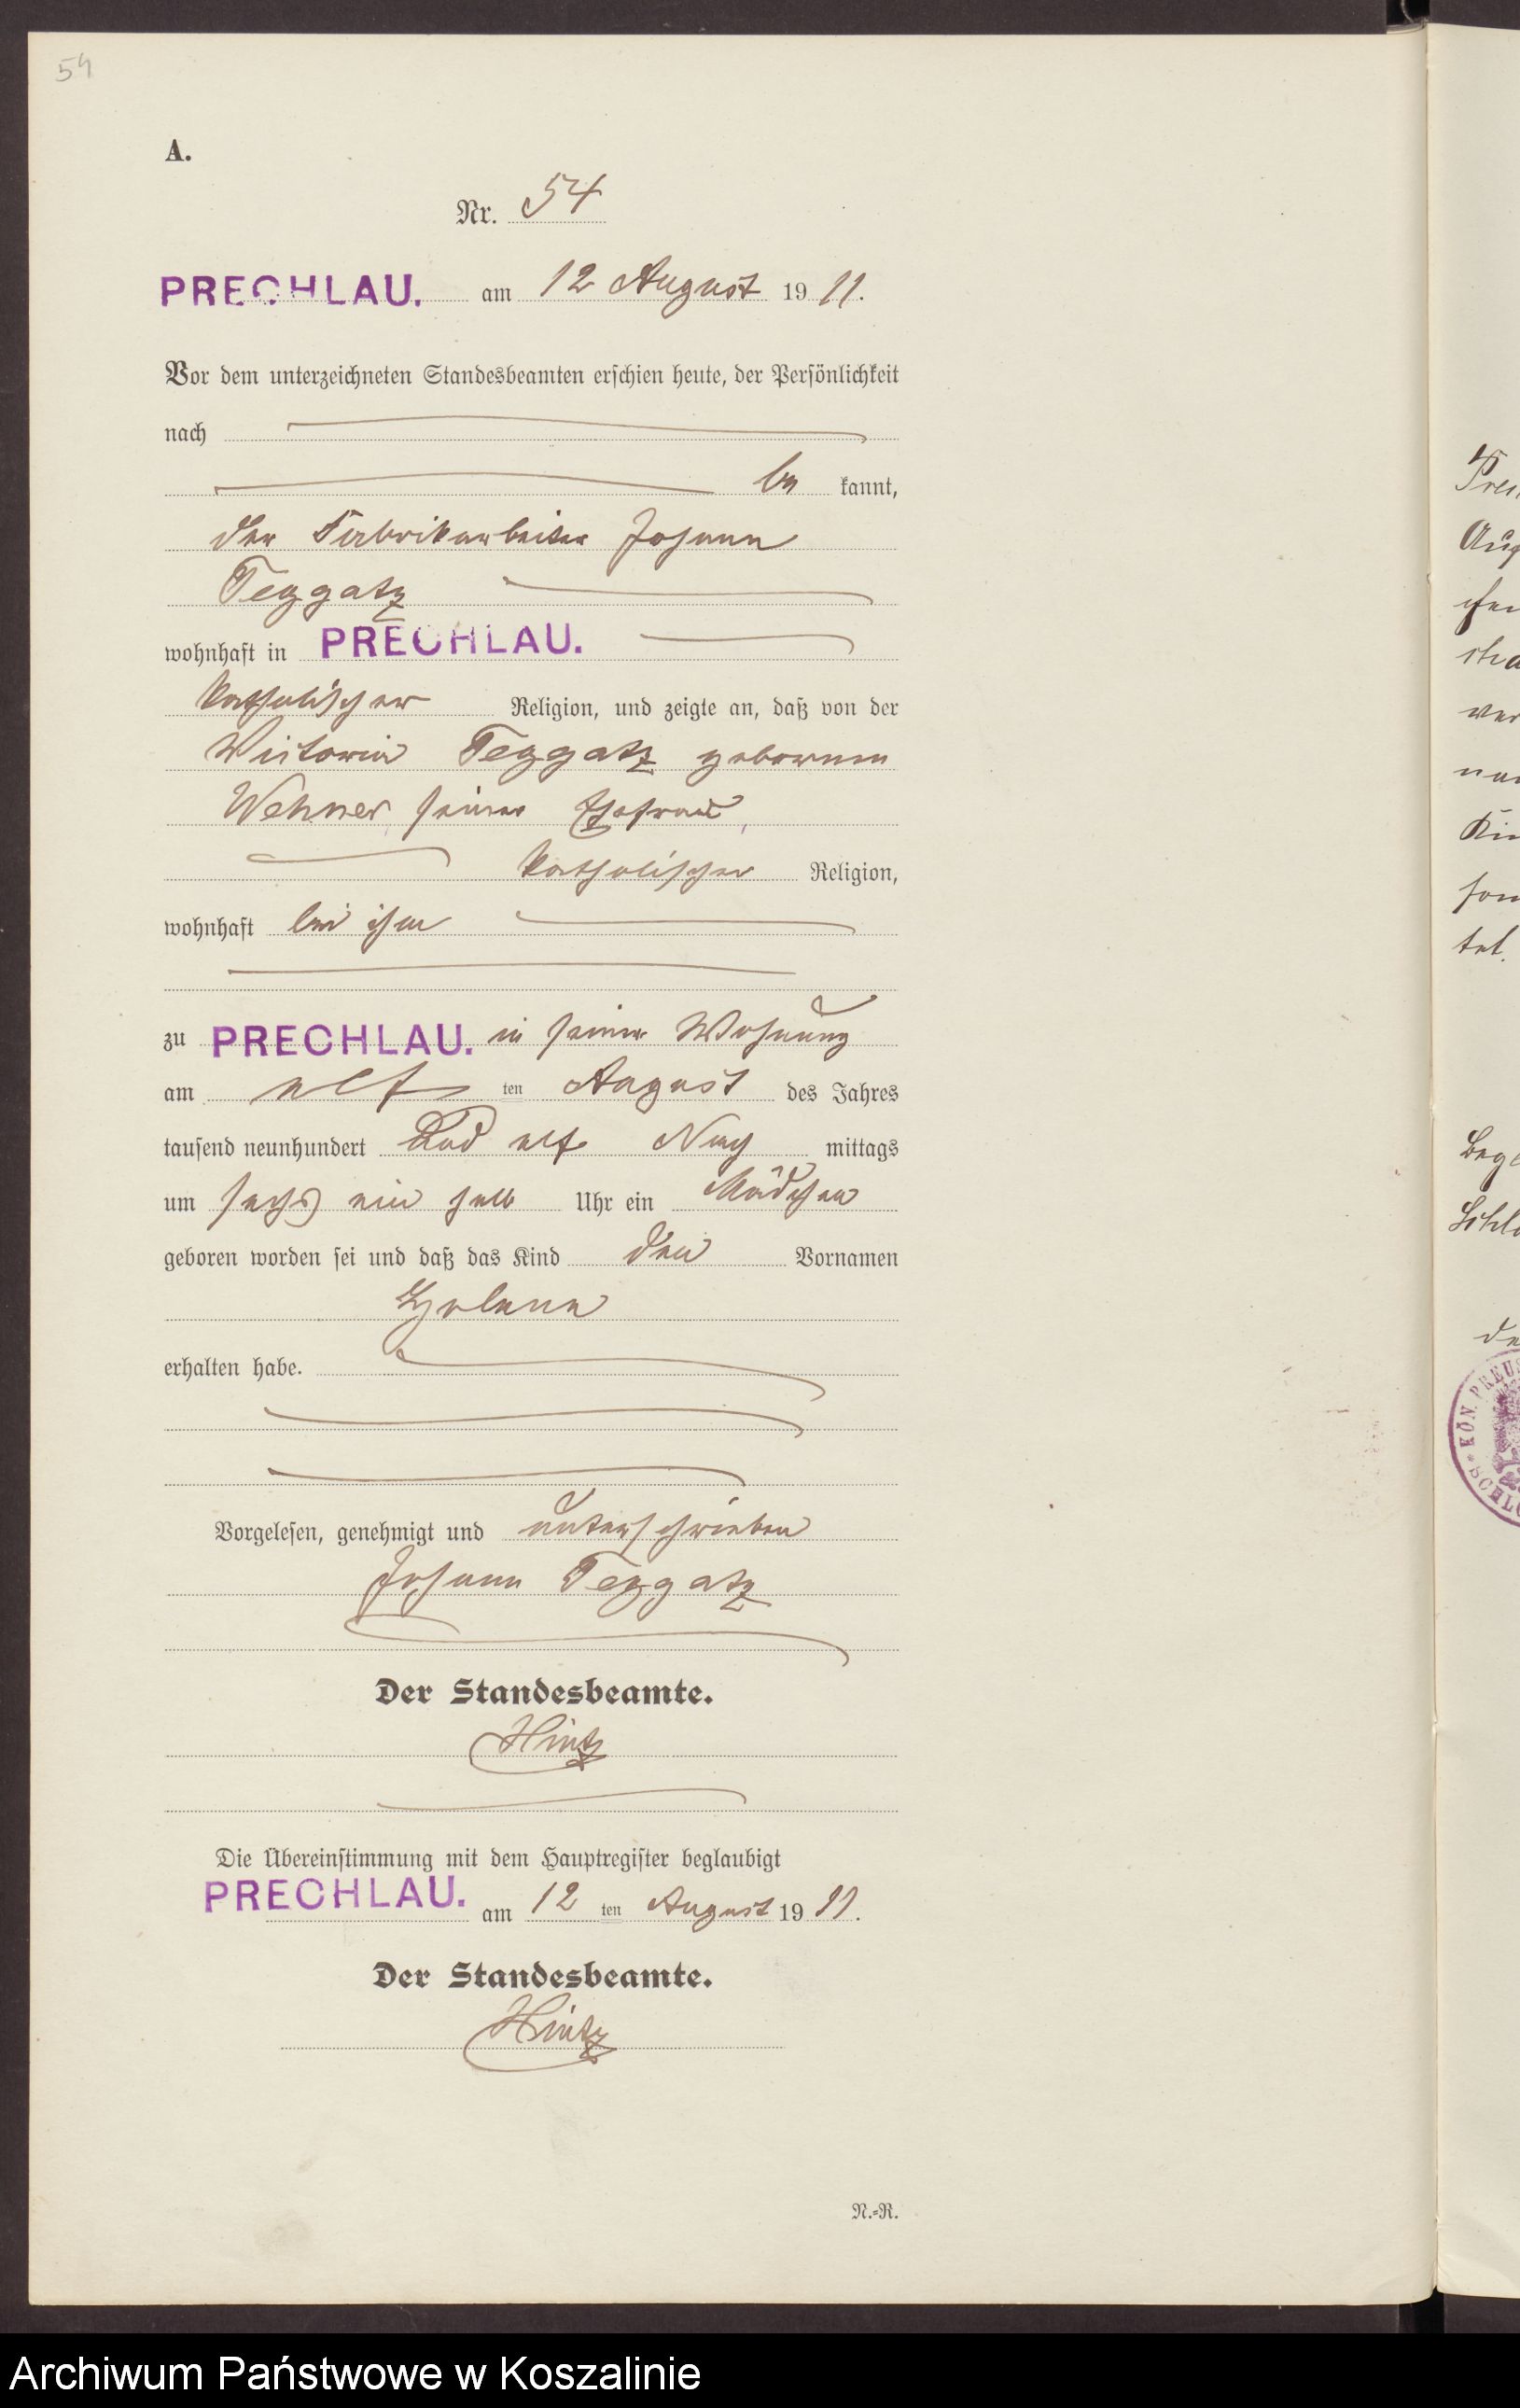 54
A.
Nr. 54
PRECHLAU. am 12 August 19 11.
Vor dem unterzeichneten Standesbeamten erschien heute, der Persönlichkeit
nach
be kannt,
der Fabrikarbeiter Johann
Teggatz
wohnhaft in PRECHLAU.
katholischer Religion, und zeigte an, daß von der
Victoria Teggatz geborenen
Wehner, seiner Ehefrau,
katholischer Religion,
wohnhaft bei ihm
zu PRECHLAU. in seiner Wohnung
am elf ten August des Jahres
tausend neunhundert und elf Nach mittags
um sechs ein halb Uhr ein Mädchen
geboren worden sei und daß das Kind den Vornamen
erhalten habe.
Vorgelesen, genehmigt und unterschrieben
Johann Teggatz
Der Standesbeamte.
Hintz
Die Übereinstimmung mit dem Hauptregister beglaubigt
PRECHLAU. am 12 ten August 19 11.
Der Standesbeamte.
Hintz
N.=R.
KÖN. PREUS
SCHLO
Archiwum Państwowe w Koszalinie